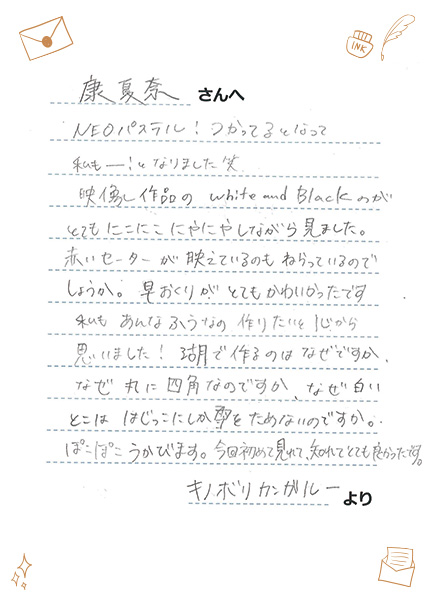 INK
康夏奈 さんへ
NEOパステル！つかってるとなって
私も ー！となりました笑
映像し作品の white and Black のが
とてもにこにこにやにやしながら見ました。
赤いセーターが映えているのもねらっているので
しょうか。早おくりがとてもかわいかったです
私も あんなふうなの 作りたいと心から
思いました！ 湖で作るのは なぜですか、
なぜ 丸に 四角なのですか、なぜ 白い
とこは はじっこにしか をためないのですか。
ぽこぽこ うかびます。今回初めて見れて、知れてとても良かったです。
キノボリカンガルー より